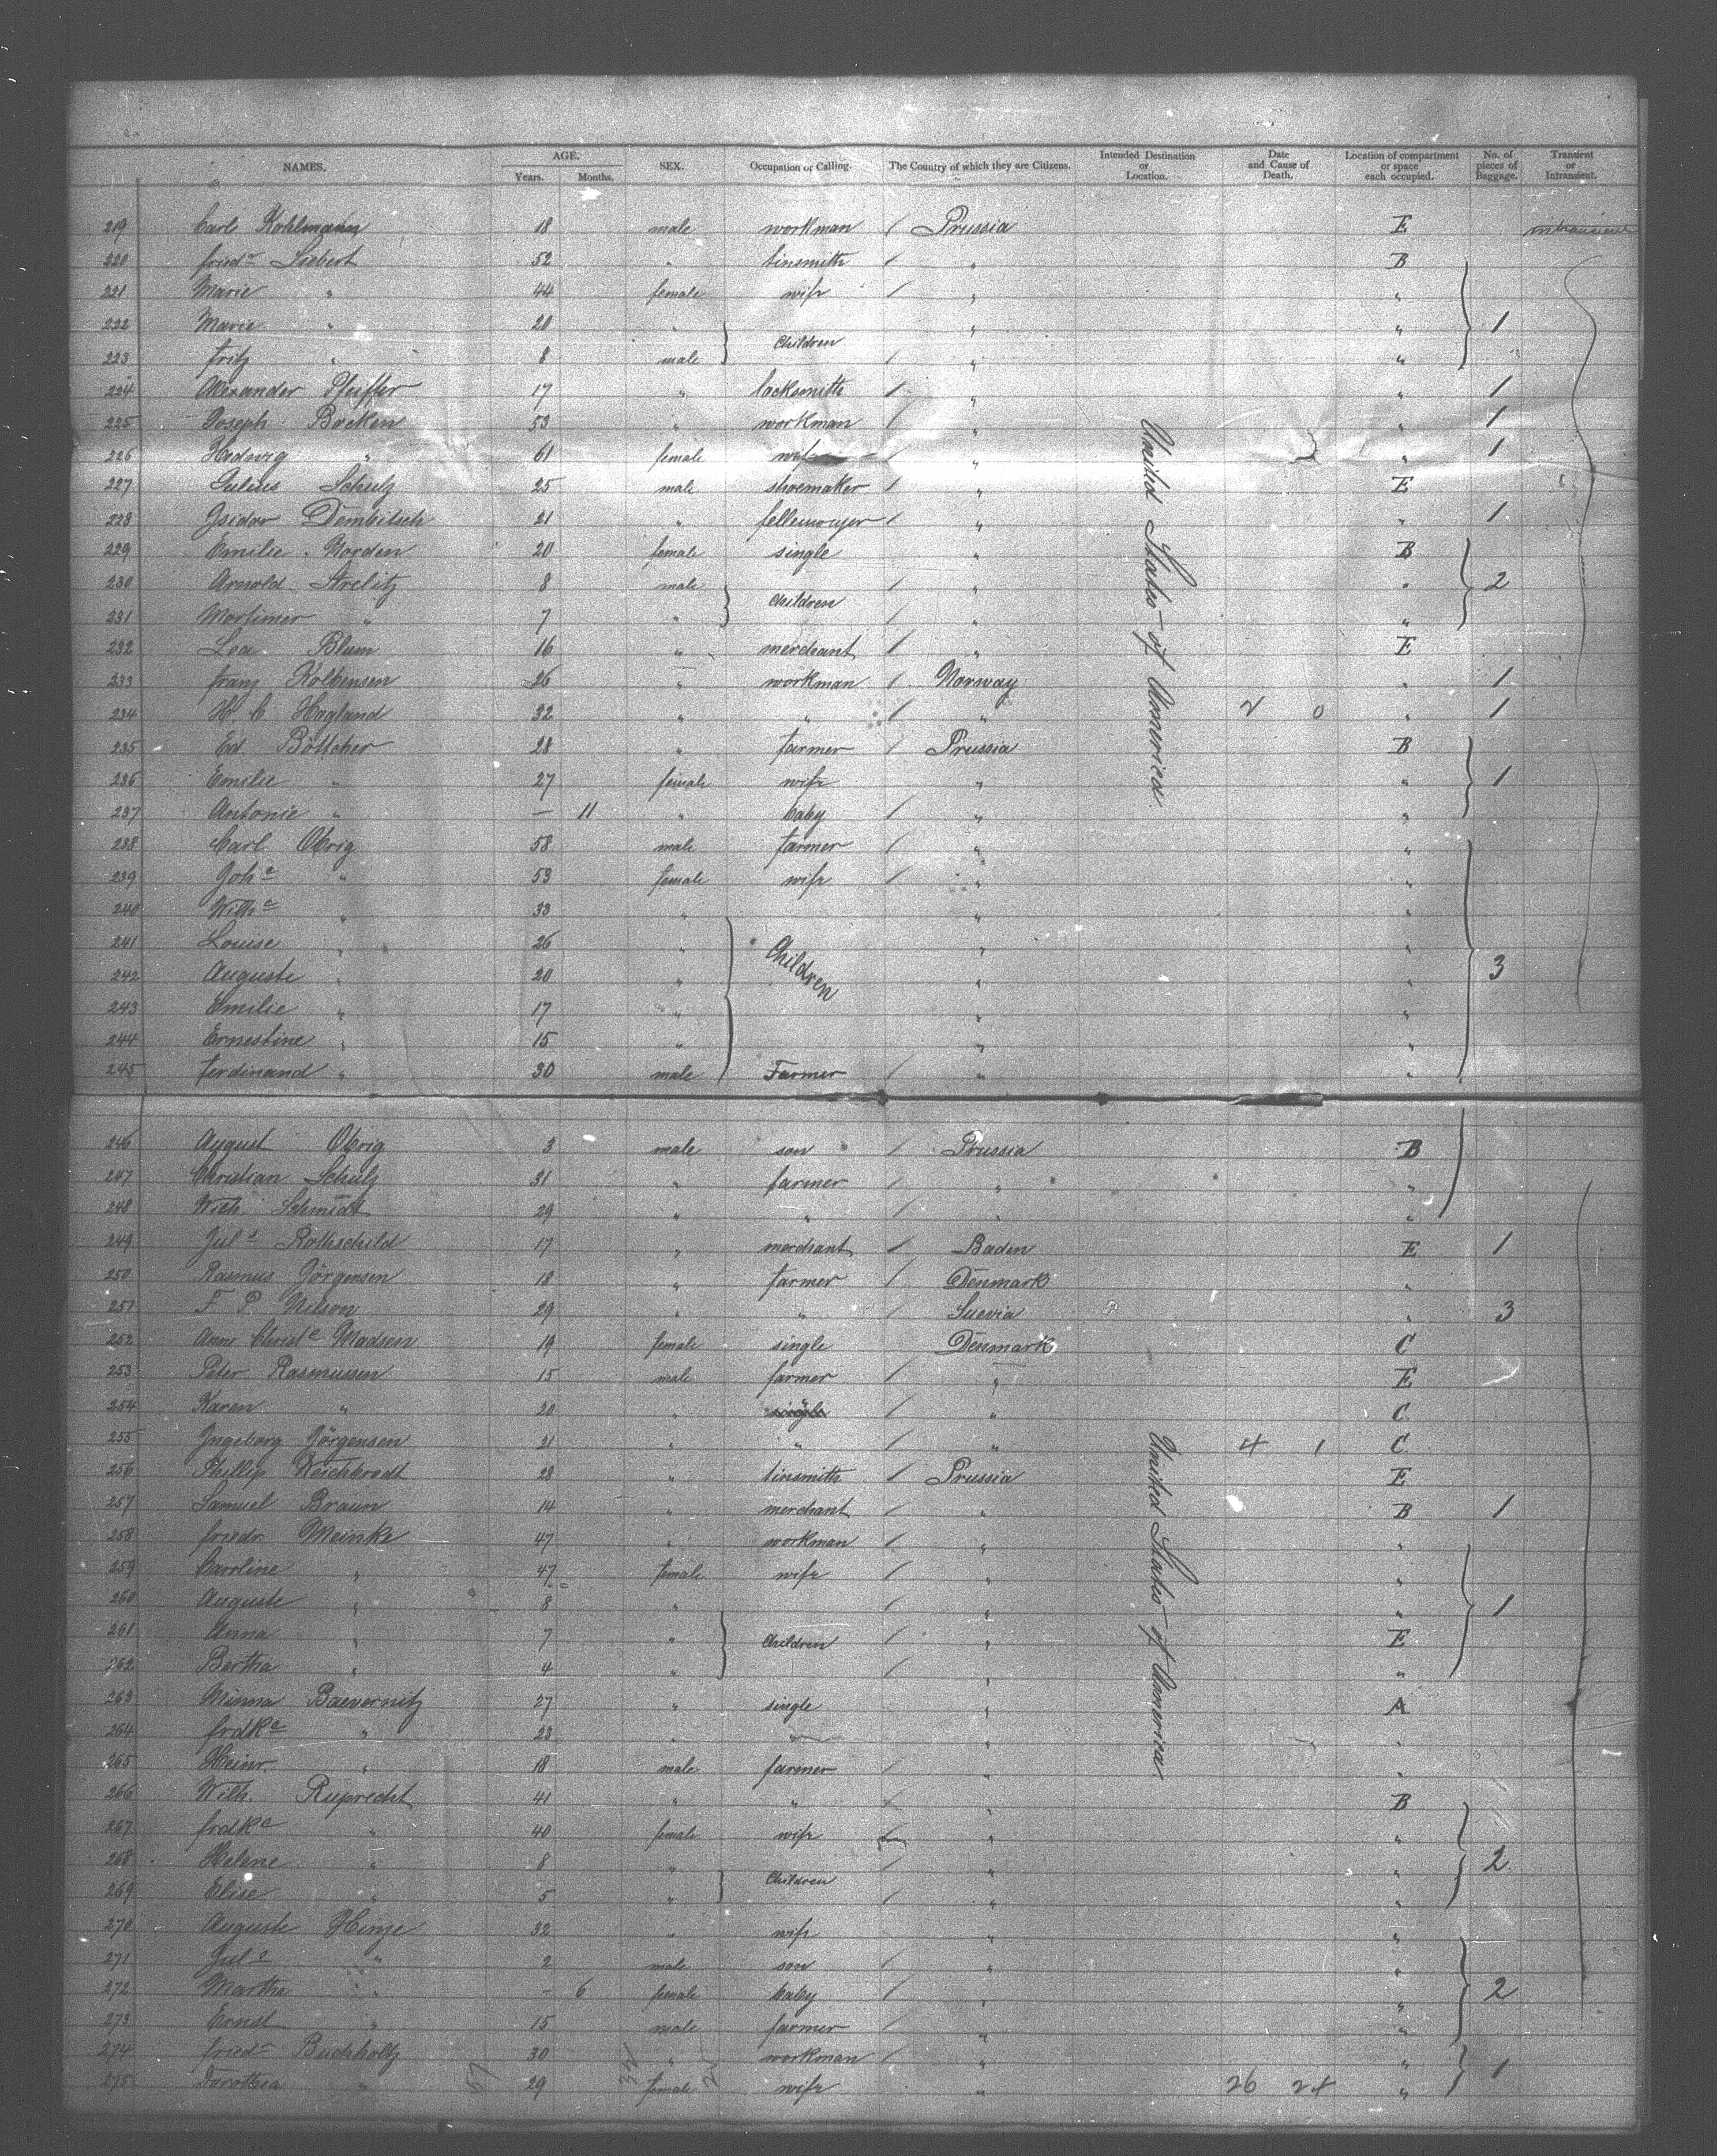 NAMES. AGE. Years. Months. SEX. Occupation or Calling. The Country of which they are Citizens. Intended Destination or Location. Date and Cause of Death. Location of compartment or space each occupied. No. of pieces of Baggage. Transient or Intransient.
219 Carl Kohlmann 18 male workman / Prussia E intransient
220 friedr Siebert 52 " tinsmith / " B
221 Marie " 44 female wife / " "
222 Marie " 20 " Children " " 1
223 fritz " 8 male / " "
224 Alexander Pfeiffer 17 " locksmith / " " 1
225 Joseph Backen 53 " workman / " " 1
226 Hedwig " 61 female wife / " " 1
227 Julius Schulz 25 male shoemaker / " E
228 Isidor Dembitsch 21 " / " " 1
229 Emilie Norden 20 female single " B
230 Arnold Strelitz 8 male Children / " " 2
231 Mortimer " 7 " / " "
232 Lea Blum 16 " merchant / " E
233 franz Kolbensen 26 " workman / Norway " 1
234 H. C Hagland 32 " " / " 2 0 " 1
235 Ed. Böttcher 28 " farmer / Prussia B
236 Emilie " 27 female wife " " 1
237 Antonie " — 11 " baby / " "
238 Carl Obrig 58 male farmer / " "
239 Johe " 53 female wife / " "
240 Wilhe " 33 " " "
241 Louise " 26 " Children " "
242 Auguste " 20 " " " 3
243 Emilie " 17 " " "
244 Ernestine " 15 " " "
245 ferdinand " 30 male Farmer / " "
United States of America
246 August Obrig 3 male son / Prussia B
247 Christian Schulz 31 " farmer / " "
248 Wilh. Schmidt 29 " " / " "
249 Juls Rothschild 17 " merchant / Baden E 1
250 Rasmus Jörgensen 18 " farmer / Denmark "
251 F P. Nilson 29 " " Suevia " 3
252 Ane Christe Madsen 19 female single Denmark C
253 Peter Rasmussen 15 male farmer / " E
254 Karen " 20 " single / " C
255 Ingeborg Jörgensen 21 " " / " 4 1 C
256 Phillip Weichbrodt 28 " tinsmith / Prussia E
257 Samuel Braun 14 " merchant / " B 1
258 friedr Meinke 47 " workman / " "
259 Caroline " 47 female wife / " "
260 Auguste " 8 " / " " 1
261 Anna " 7 " Children / " E
262 Bertha " 4 " / " "
263 Minna Baevernitz 27 " single " A
264 frdke " 23 " " " "
265 Heinr. " 18 male farmer " "
266 Wilh. Ruprecht 41 " " / " B
267 frdke " 40 female wife " "
268 Helene " 8 " Children / " " 2
269 Elise " 5 " / " "
270 Auguste Hinze 32 " wife " "
271 Juls " 2 male son / " "
272 Martha " — 6 female baby / " " 2
273 Ernst " 15 male farmer / " "
274 friedr Buchholtz 30 " workman / " "
275 Dorothea " 29 female wife " 26 24 " 1
United States of America